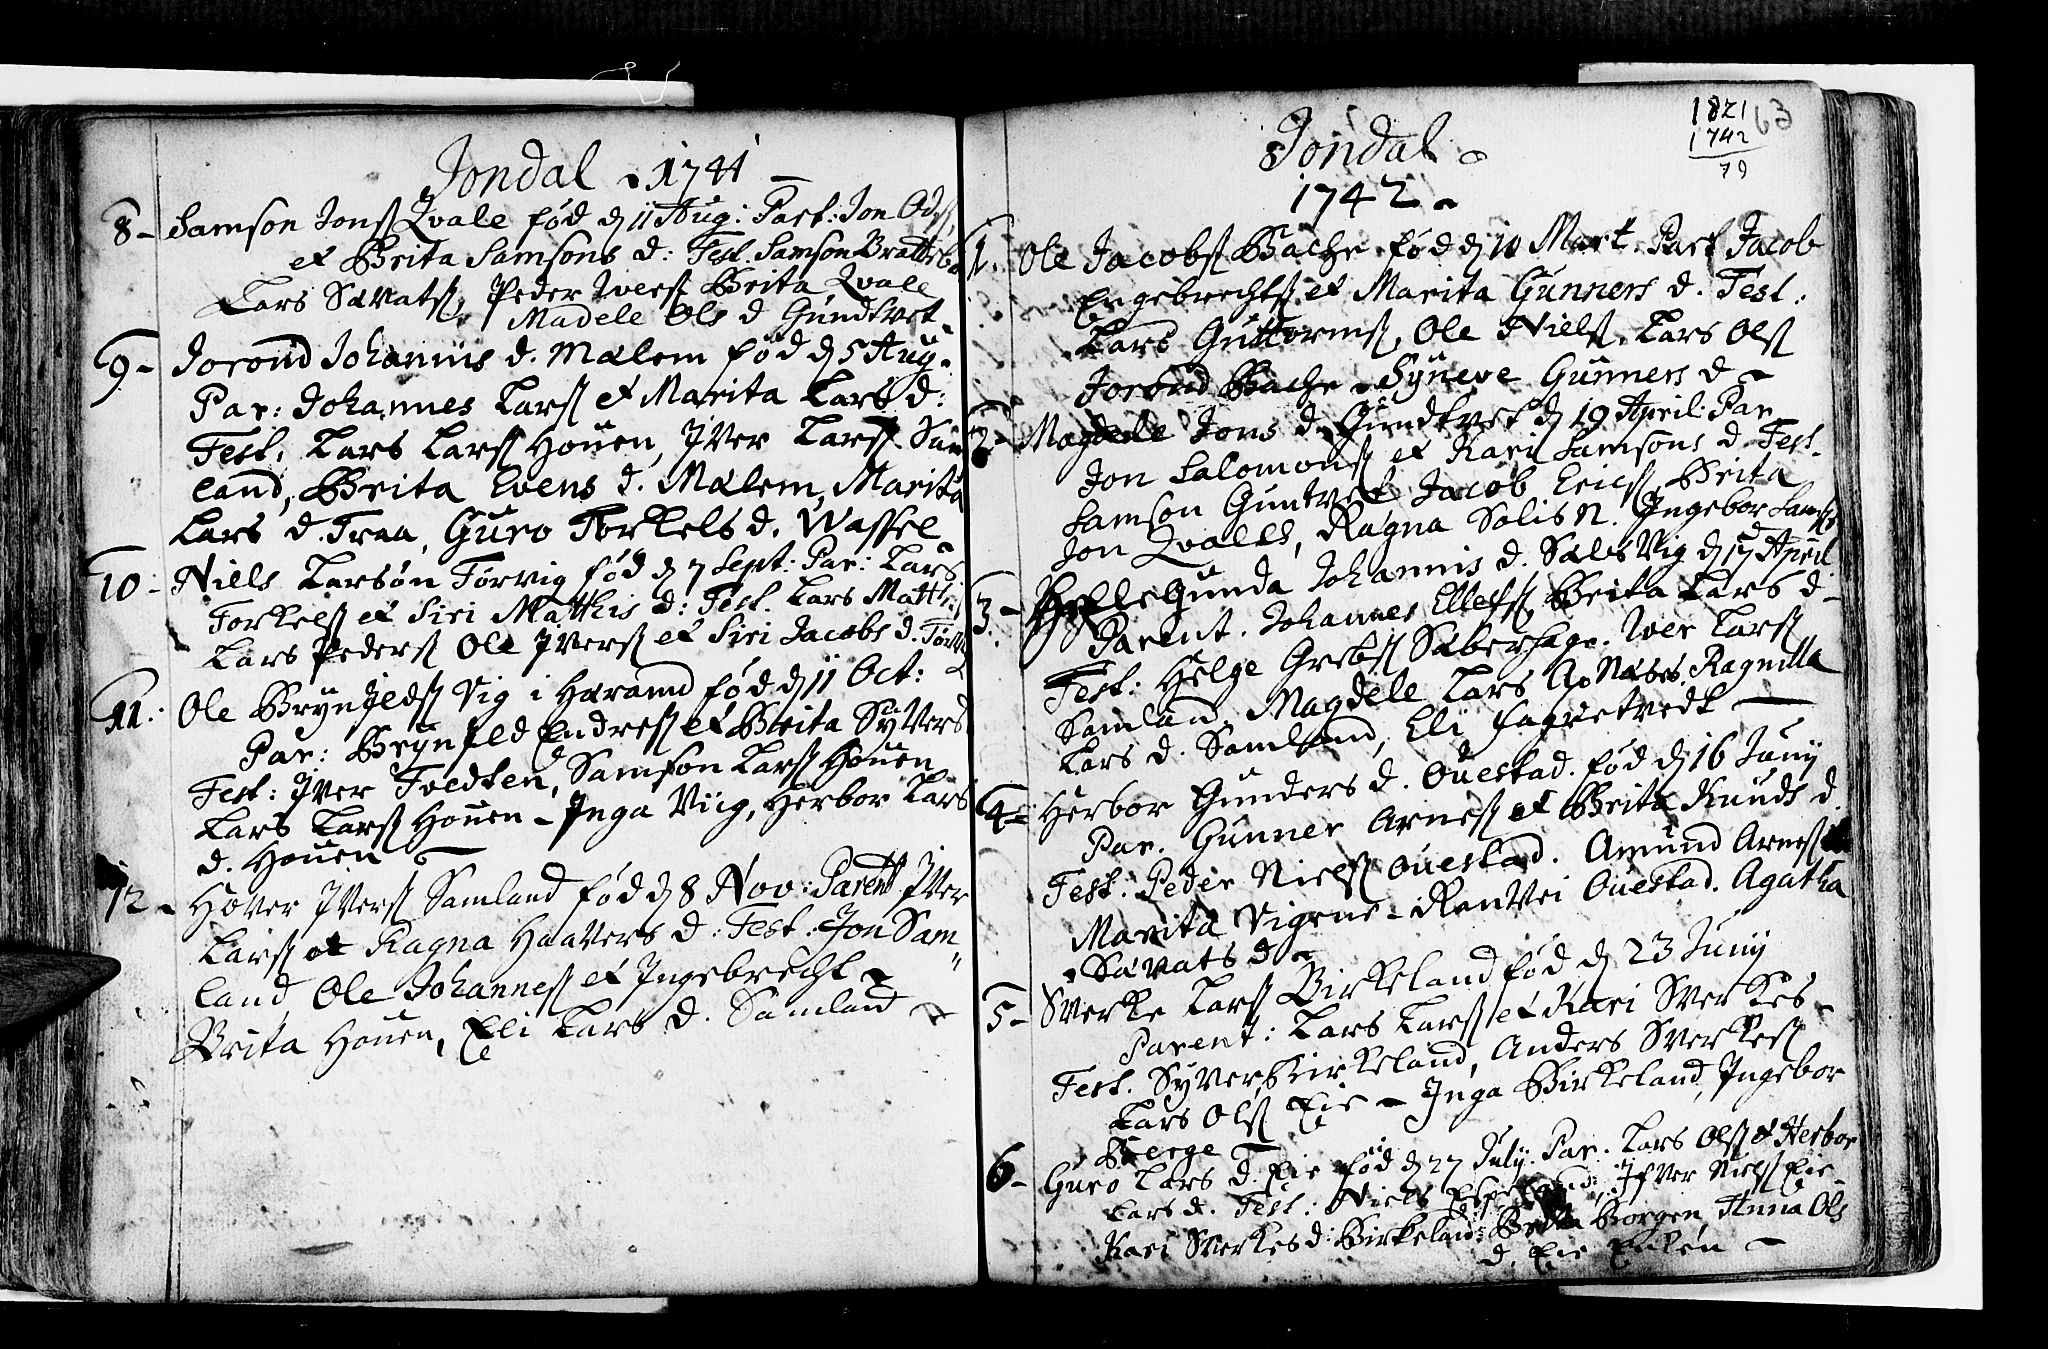 Jondal - 1741
8 - Samson Jonsſ Qvale fød d 11 Aug: Part: Jon Odsſ
et Brita Samsons d: Test. Samson Brattebo
Lars Sævatsſ, Peder Iversſ Brita Qvale
Madele Ols d Gundtvet -
9 - Jorond Johannis d. Mælem fød d 5 Aug.
Par: Johannes Larsſ et Marita Lars d:
Test. Lars Larsſ Houen, Iver Larsſ Sam
land, Brita Evens d. Mælem, Marita
Lars d. Traa, Guro Torkels d. Wassel
10 - Niels Larsøn Torvig fød d 7 Sept: Par: Lars
Torkelsſ et Siri Matthis d: Test. Lars Matthis
Lars Pedersſ Ole Iversſ et Siri Jacobs d. Torv
11. Ole Brynjeldsſ Vig i Hæramd fød d 11 Oct:
Par: Brynjeld Endresſ et Brita Syvers
Test: Iver Tvedten, Samson Larsſ Houen
Lars Larsſ Houen - Inga Viig, Herbor Lars
d. Houen
12 - Hover Iversſ Samland fød d 8 Nov: Parent Iver
Larsſ et Ragna Haavers d: Test: Jon Sam
land, Ole Johannesſ et Ingebrecht
Brita Houen, Eli Lars d. Samland
1821 63
1742
79
Jondal
1742
1. Ole Jacobsſ Bache fød d 10 Mart. Part Jacob
Engebrechtsſ et Marita Gunners d. Test:
Lars Guttormsſ, Ole Nielsſ, Lars Olsſ
Jorond Bache - Syneve Gunners d -
2 - Magdele Jons d. Gundtvet d 19 April: Par
Jon Salomonsſ et Kari Samsons d. Test.
Samson Guntvet Jacob Ericsſ, Brita
Jon Qvales, Ragna Solis N. Ingebor Sams
3 - Helle Gunda Johannis d. Sælsvig d 17 April
Parent. Johannes Ellefsſ, Brita Lars d -
Test: Helge Grebsſ Saberhage. Iver Larsſ
Samland, Magdele Lars Næses, Ragnilla
Lars d. Samland, Eli Fagretvedt
4 - Herbor Gunders d. Ouestad. fød d 16 Junij
Par. Gunner Arnesſ et Brita Knuds d.
Test. Peder Nielsſ Ouestad. Amund Arnesſ
Marita Vigene - Ranvei Ouestad. Agatha
Sævats d -
5 - Sverke Larsſ Birkeland fød d 23 Junij
Parent: Lars Larsſ et Kari Sverkes -
Test. Syver Birkeland, Anders Sverkesſ
Lars Olsſ Eie - Inga Birkeland, Ingebor
Berge
6 - Guro Lars d. Eie fød d 27 July. Par. Lars Olsſ et Herbor
Lars d. Test: Niels Espeland, Ifver Nielsſ Eie -
Kari Sverkes d: Birkeland: Britta Borgen, Anna Ols
d. Eie